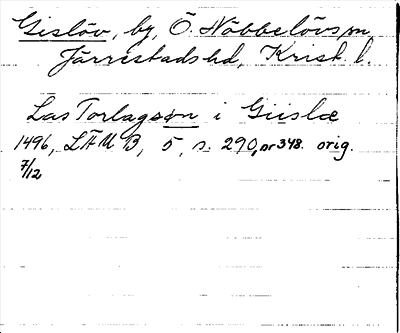 Gislöv, by, Ö. Nöbbelövs sn
Järrestads hd, Krist. l.
Las Torlagsøn i Giislæ
1496, LÄU B, 5, s. 290, nr 348. orig.
7/12